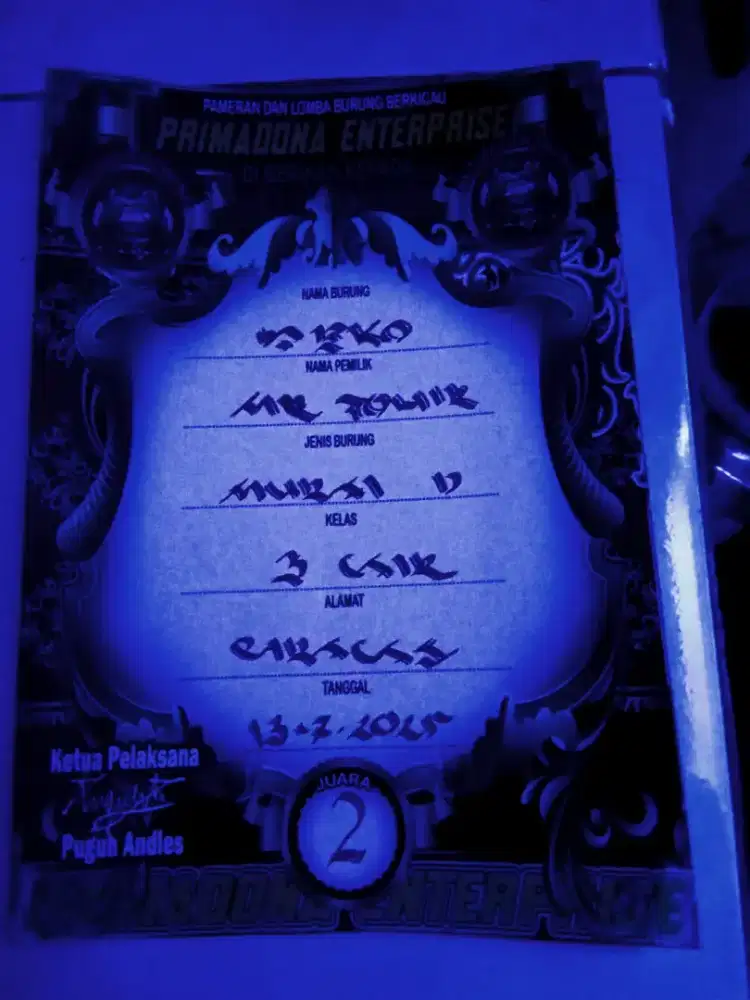 PAMERAN DAN LOMBA BURUNG BERKICAU
PRIMADONA ENTERPRISE
DI
NAMA BURUNG
NAMA PEMILIK
MR
JENIS BURUNG
MURAI B
KELAS
3
ALAMAT
CIRACAS
TANGGAL
13-7-2025
Ketua Pelaksana
Puguh Andies
JUARA
2
PRIMADONA ENTERPRISE